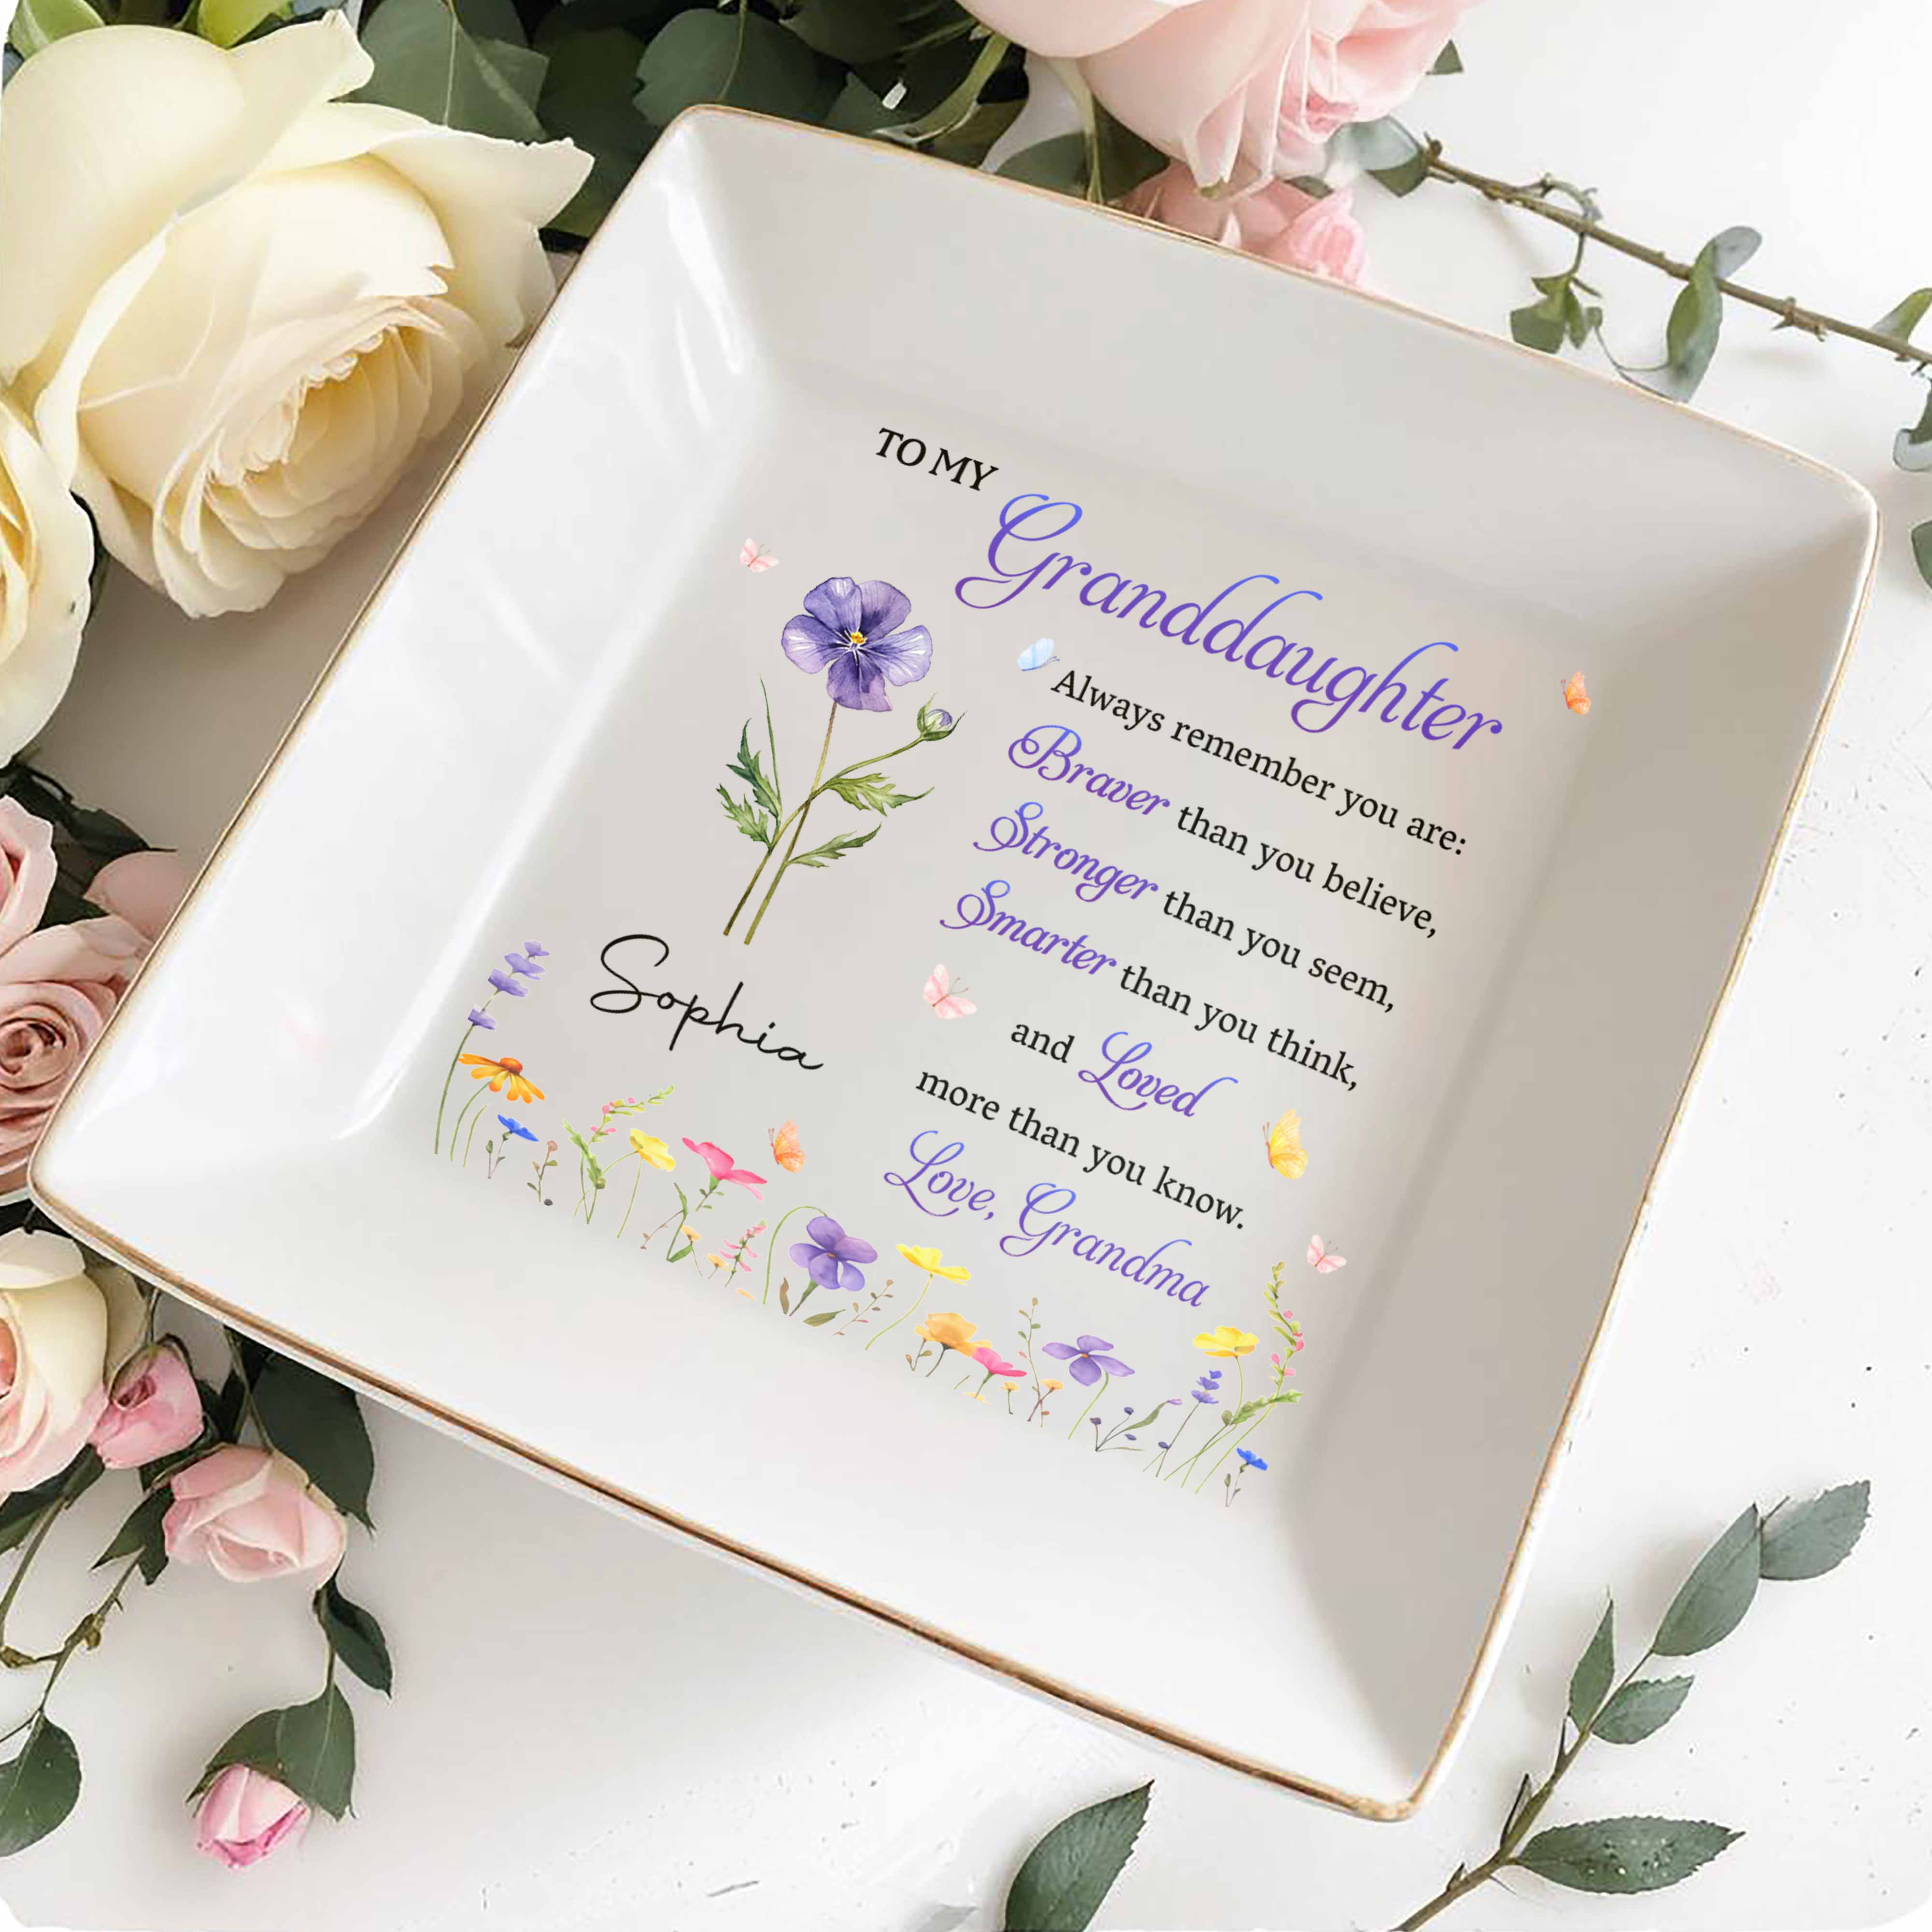 TO MY
Granddaughter
Always remember you are:
Braver than you believe,
Stronger than you seem,
Smarter than you think,
and Loved
more than you know.
Love, Grandma
Sophia